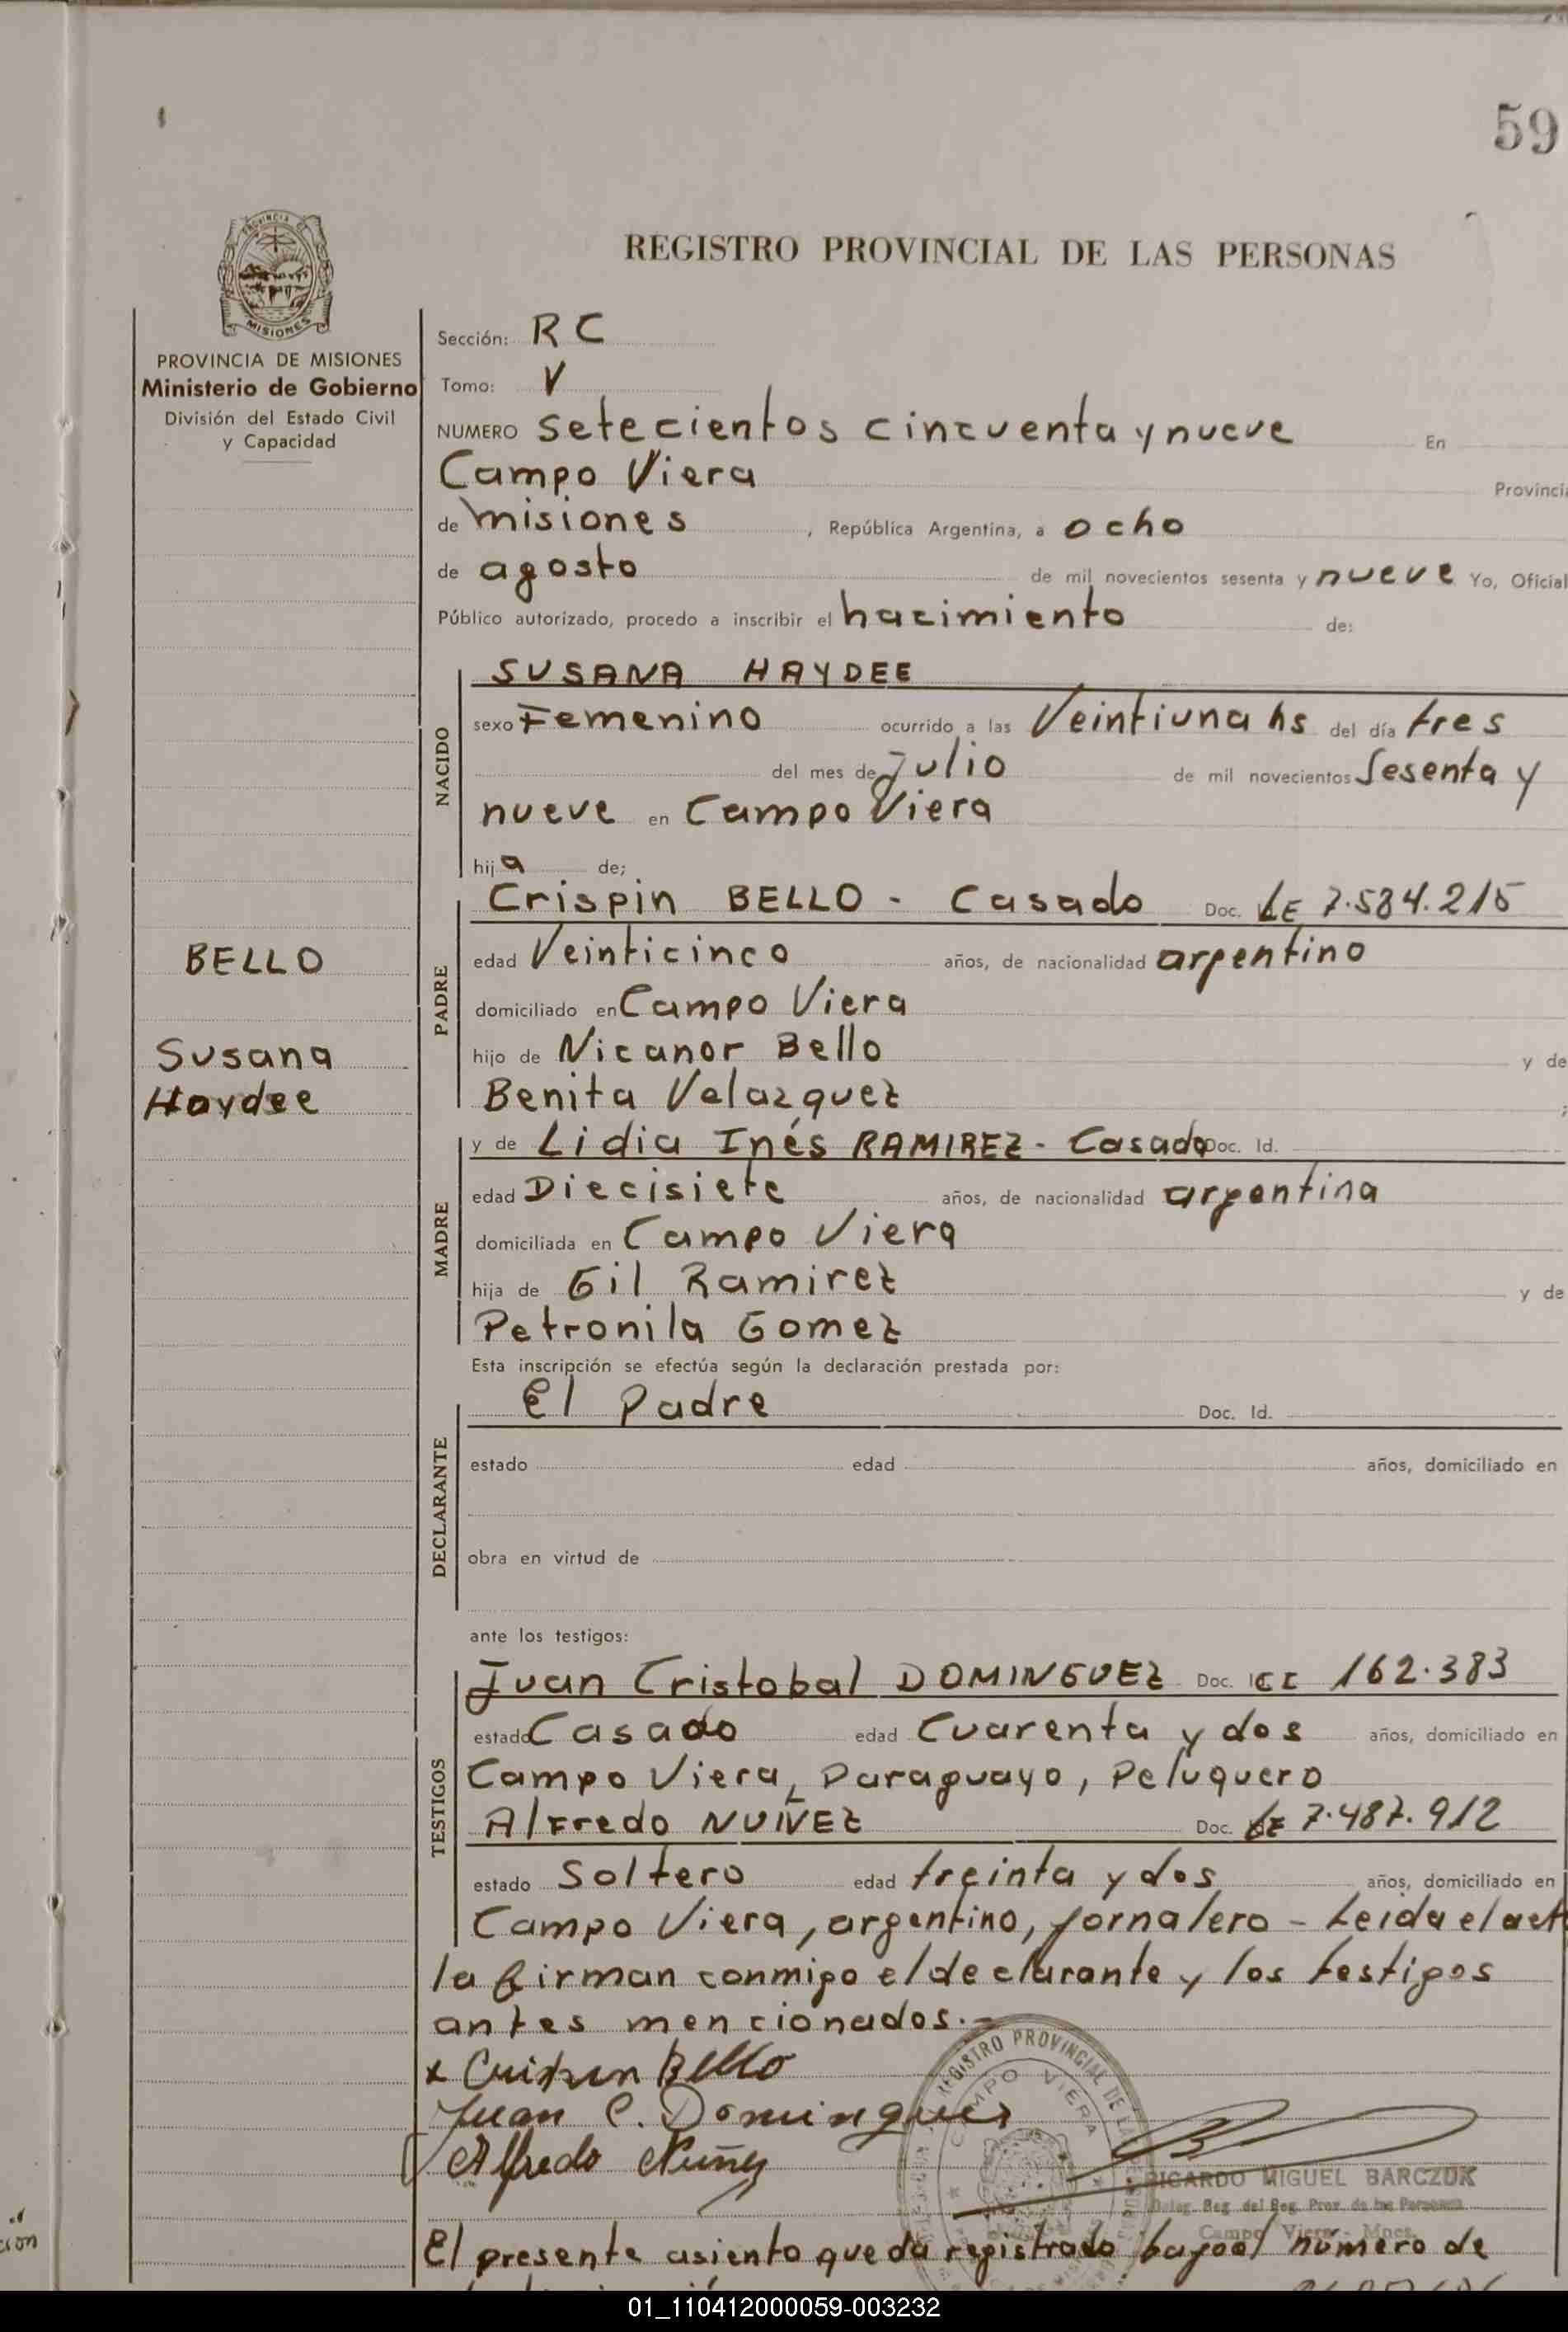 59
REGISTRO PROVINCIAL DE LAS PERSONAS
PROVINCIA DE MISIONES
Ministerio de Gobierno
División del Estado Civil
y Capacidad
Sección: RC
Tomo: V
NUMERO Setecientos cincuenta y nueve En
Campo Viera Provinci
de misiones, República Argentina, a ocho
de agosto de mil novecientos sesenta y nueve Yo, Oficial
Público autorizado, procedo a inscribir el nacimiento de:
NACIDO
SUSANA HAYDEE
sexo Femenino ocurrido a las Veintiuna hs del día tres
del mes de Julio de mil novecientos Sesenta y
nueve en Campo Viera
hija de;
PADRE
Crispin BELLO - Casado Doc. LE 7.584.215
edad Veinticinco años, de nacionalidad argentino
domiciliado en Campo Viera
hijo de Nicanor Bello y de
Benita Velazquez ;
BELLO
Susana
Haydee
MADRE
y de Lidia Inés RAMIREZ - Casado Doc. Id.
edad Diecisiete años, de nacionalidad argentina
domiciliada en Campo Viera
hija de Gil Ramirez y de
Petronila Gomez
Esta inscripción se efectúa según la declaración prestada por:
DECLARANTE
El Padre Doc. Id.
estado edad años, domiciliado en
obra en virtud de
ante los testigos:
TESTIGOS
Juan Cristobal DOMINGUEZ Doc. CI 162.383
estado Casado edad Cuarenta y dos años, domiciliado en
Campo Viera, Paraguayo, Peluquero
Alfredo NUÑEZ Doc. LE 7.487.912
estado Soltero edad treinta y dos años, domiciliado en
Campo Viera, argentino, jornalero - Leida el act
la firman conmigo el declarante y los testigos
antes mencionados.-
x Crispin Bello
Juan C. Dominguez
Alfredo Nuñez
REGISTRO PROVINCIAL DE LAS
CAMPO VIERA
RICARDO MIGUEL BARCZUK
Deleg. Reg. del Reg. Prov. de las Personas
Campo Viera - Mnes.
El presente asiento queda registrado bajo el número de
01_110412000059-003232